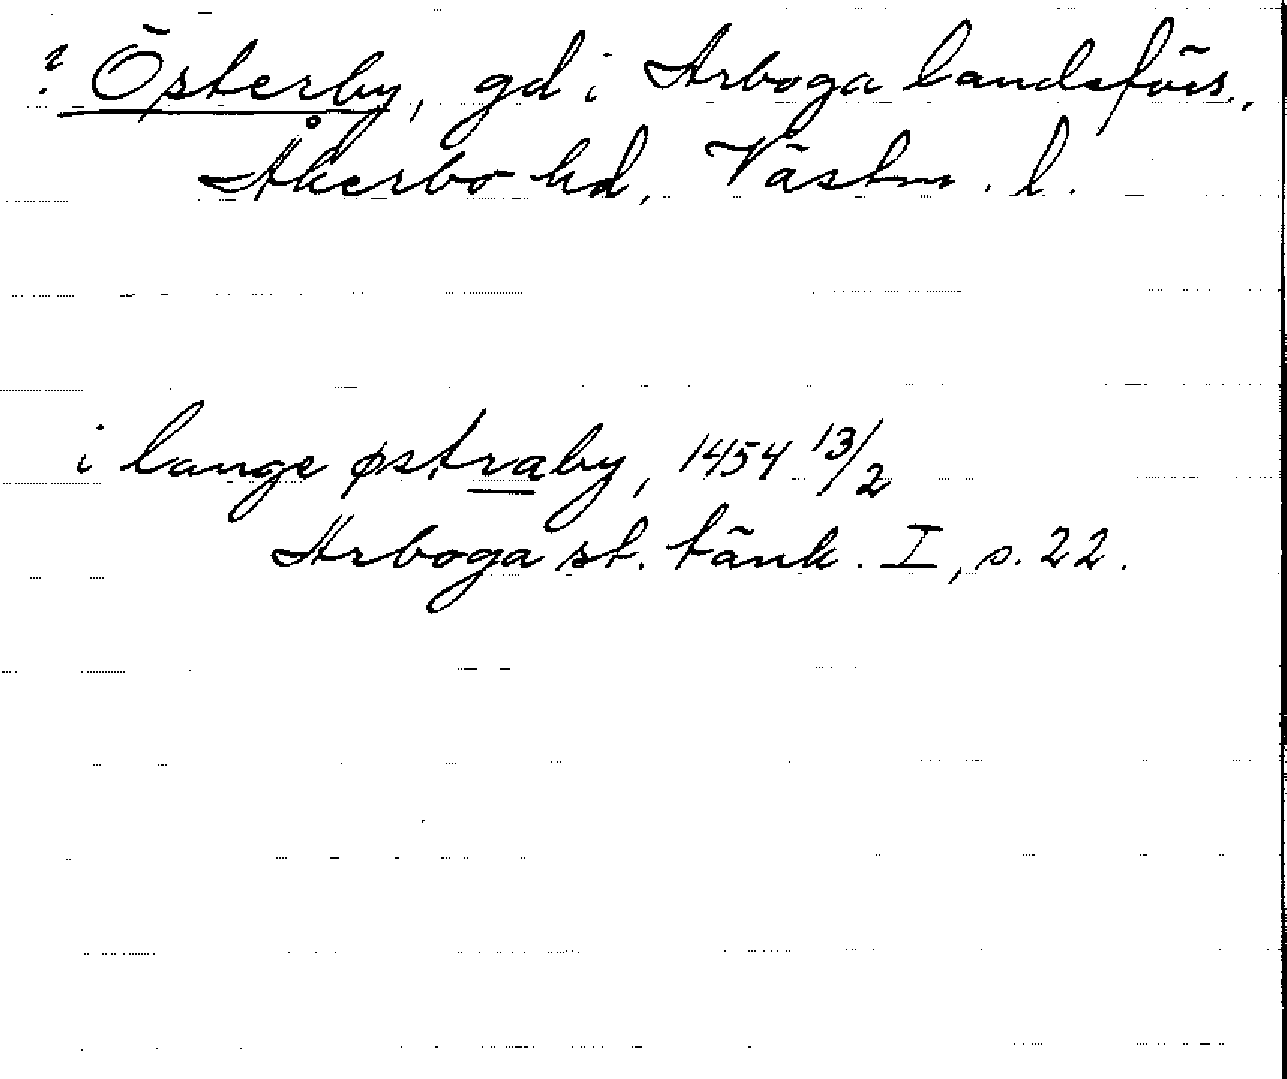 ? Österby, gd i Arboga landsförs.,
Åkerbo hd, Västm. l.
i lange østraby, 1454 13/2
Arboga st. tänk. I, s. 22.